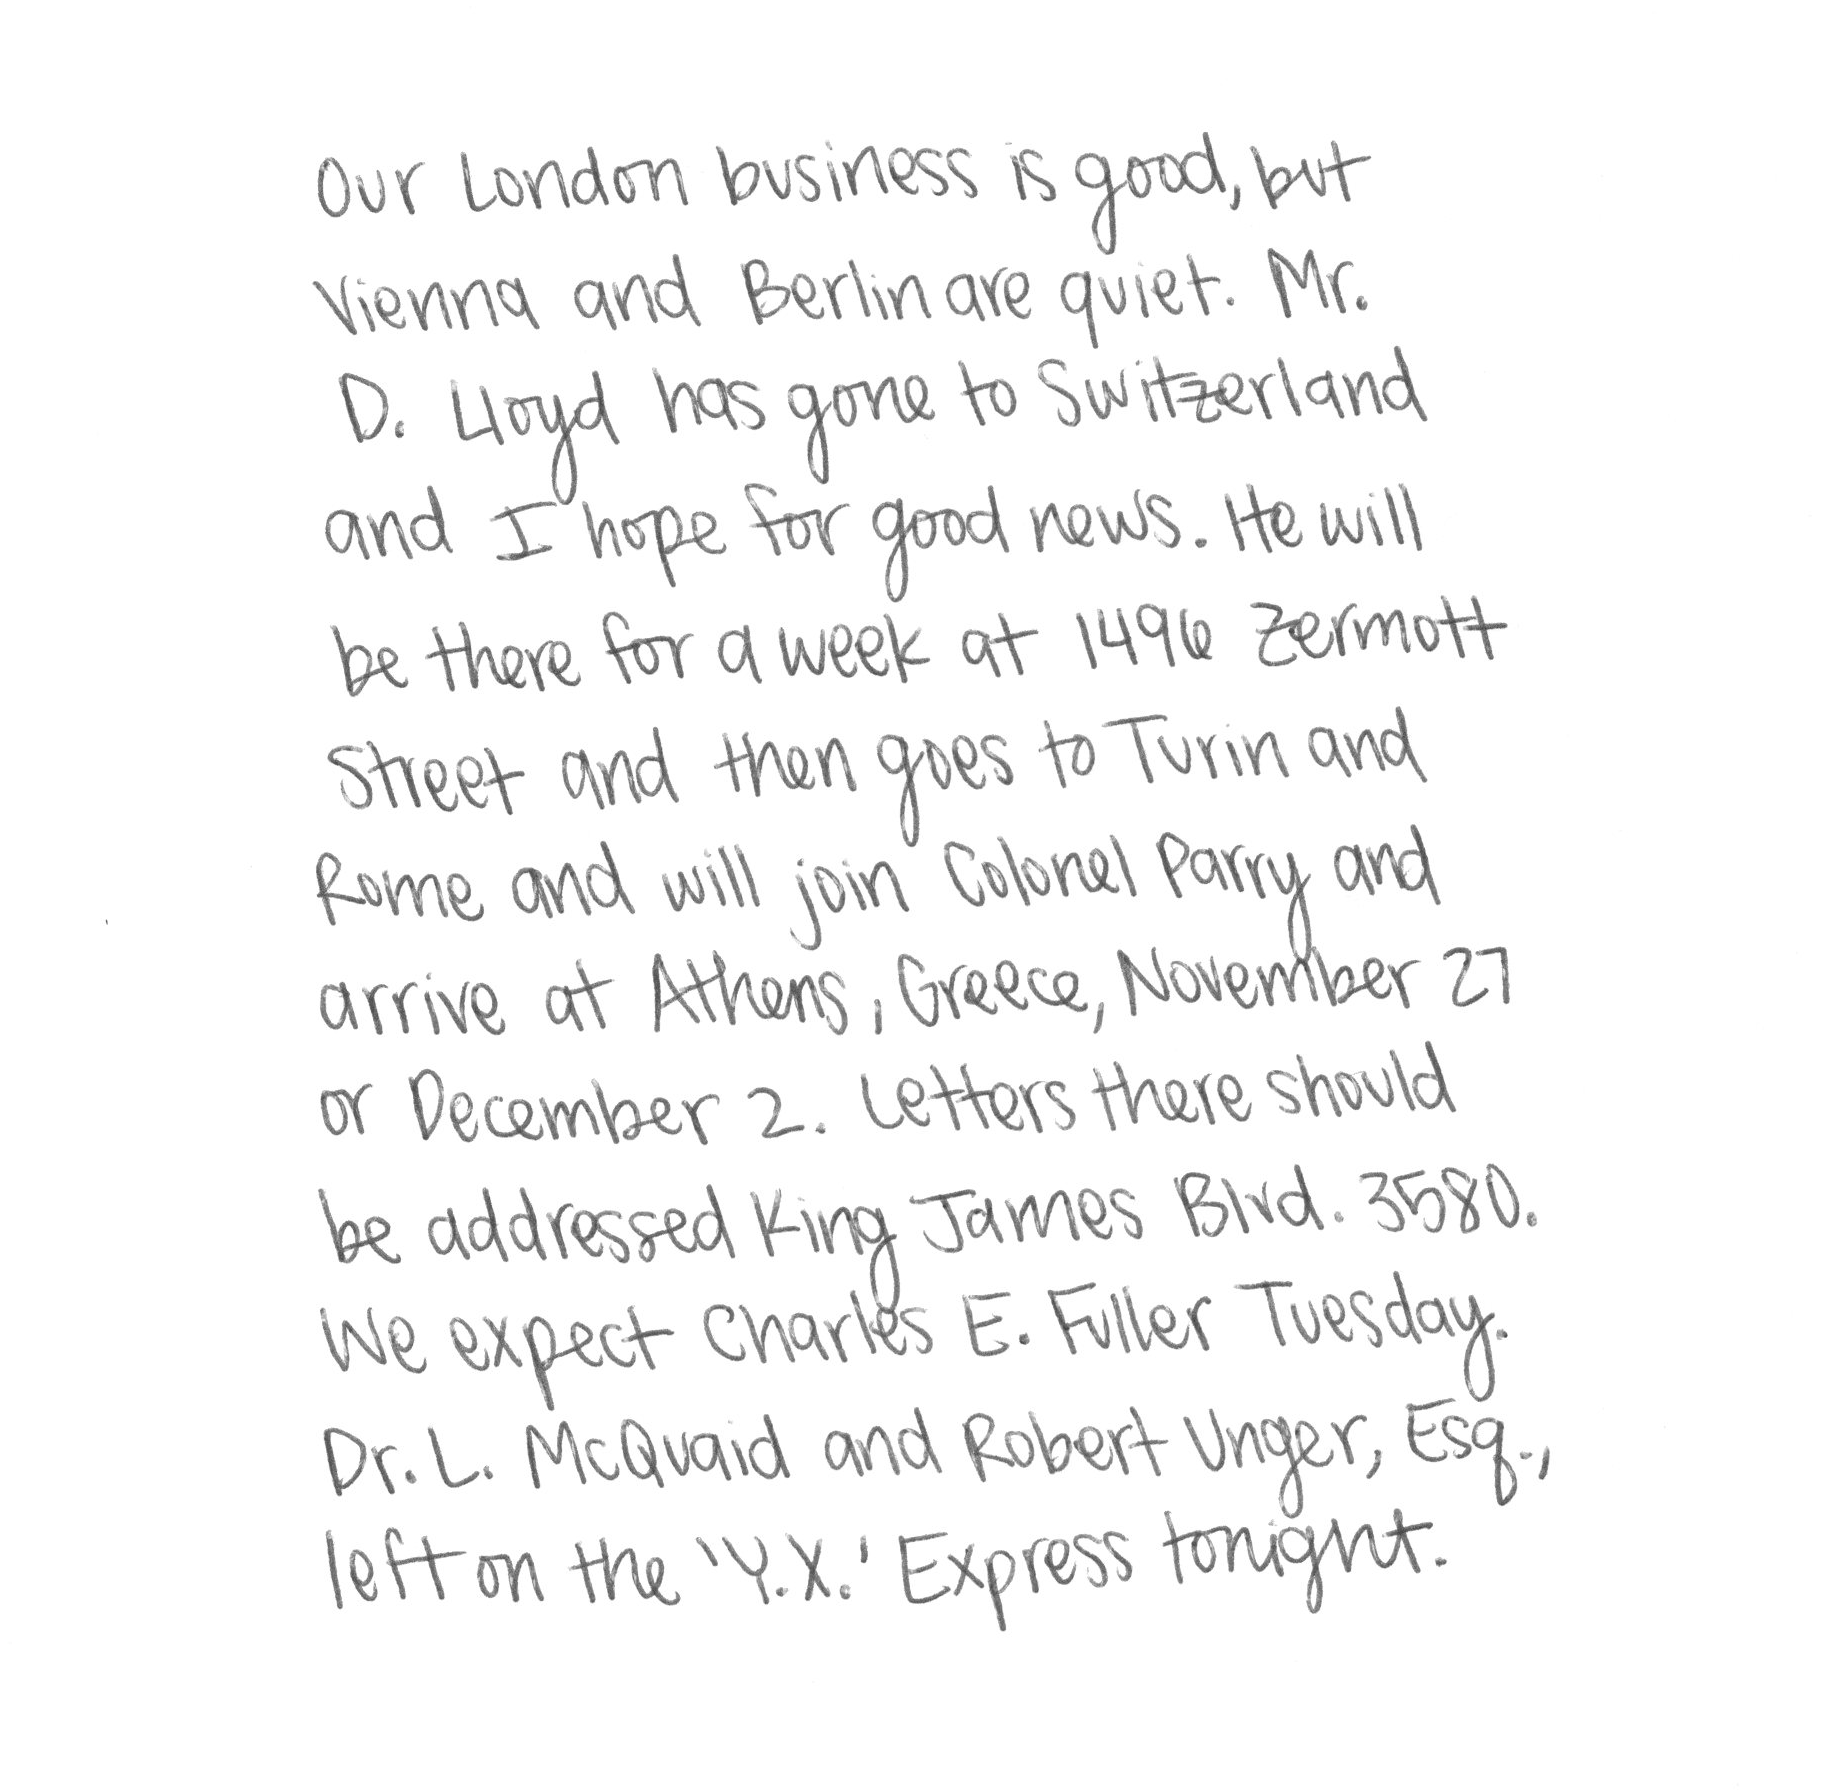 Our London business is good, but
Vienna and Berlin are quiet. Mr.
D. Lloyd has gone to Switzerland
and I hope for good news. He will
be there for a week at 1496 Zermott
Street and then goes to Turin and
Rome and will join Colonel Parry and
arrive at Athens, Greece, November 27
or December 2. Letters there should
be addressed King James Blvd. 3580.
We expect Charles E. Fuller Tuesday.
Dr. L. McQuaid and Robert Unger, Esq.,
left on the 'Y.X.' Express tonight.